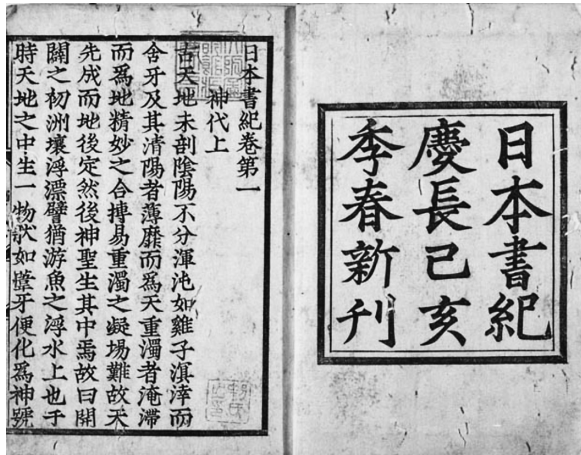 日本書紀
慶長己亥
季春新刊
日本書紀卷第一
神代上
古天地未剖陰陽不分渾沌如雞子溟涬而
含牙及其清陽者薄靡而爲天重濁者淹滯
而爲地精妙之合摶易重濁之凝場難故天
先成而地後定然後神聖生其中焉故曰開
闢之初洲壤浮漂譬猶游魚之浮水上也于
時天地之中生一物狀如葦牙便化爲神號